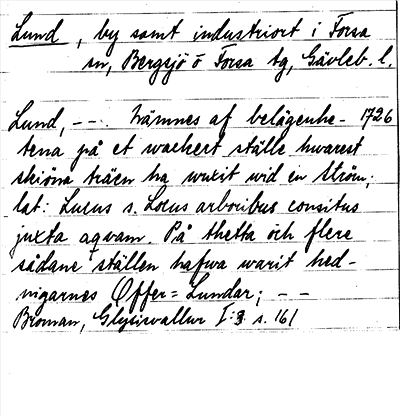 Lund, by samt industriort i Forsa
sn, Bergsjö o Forsa tg, Gävleb. l.
Lund, --. Nämnes af belägenhe- 1726
tena på et wackert ställe hwarest
skiöna träen ha wuxit wid en Ström;
lat: Lucus s. Locus arboribus consitus
juxta aqvam. På thetta och flere
sådane ställen hafwa warit hed-
nigarnes Offer=Lundar; --
Broman, Glysiswallur I:3 s. 161